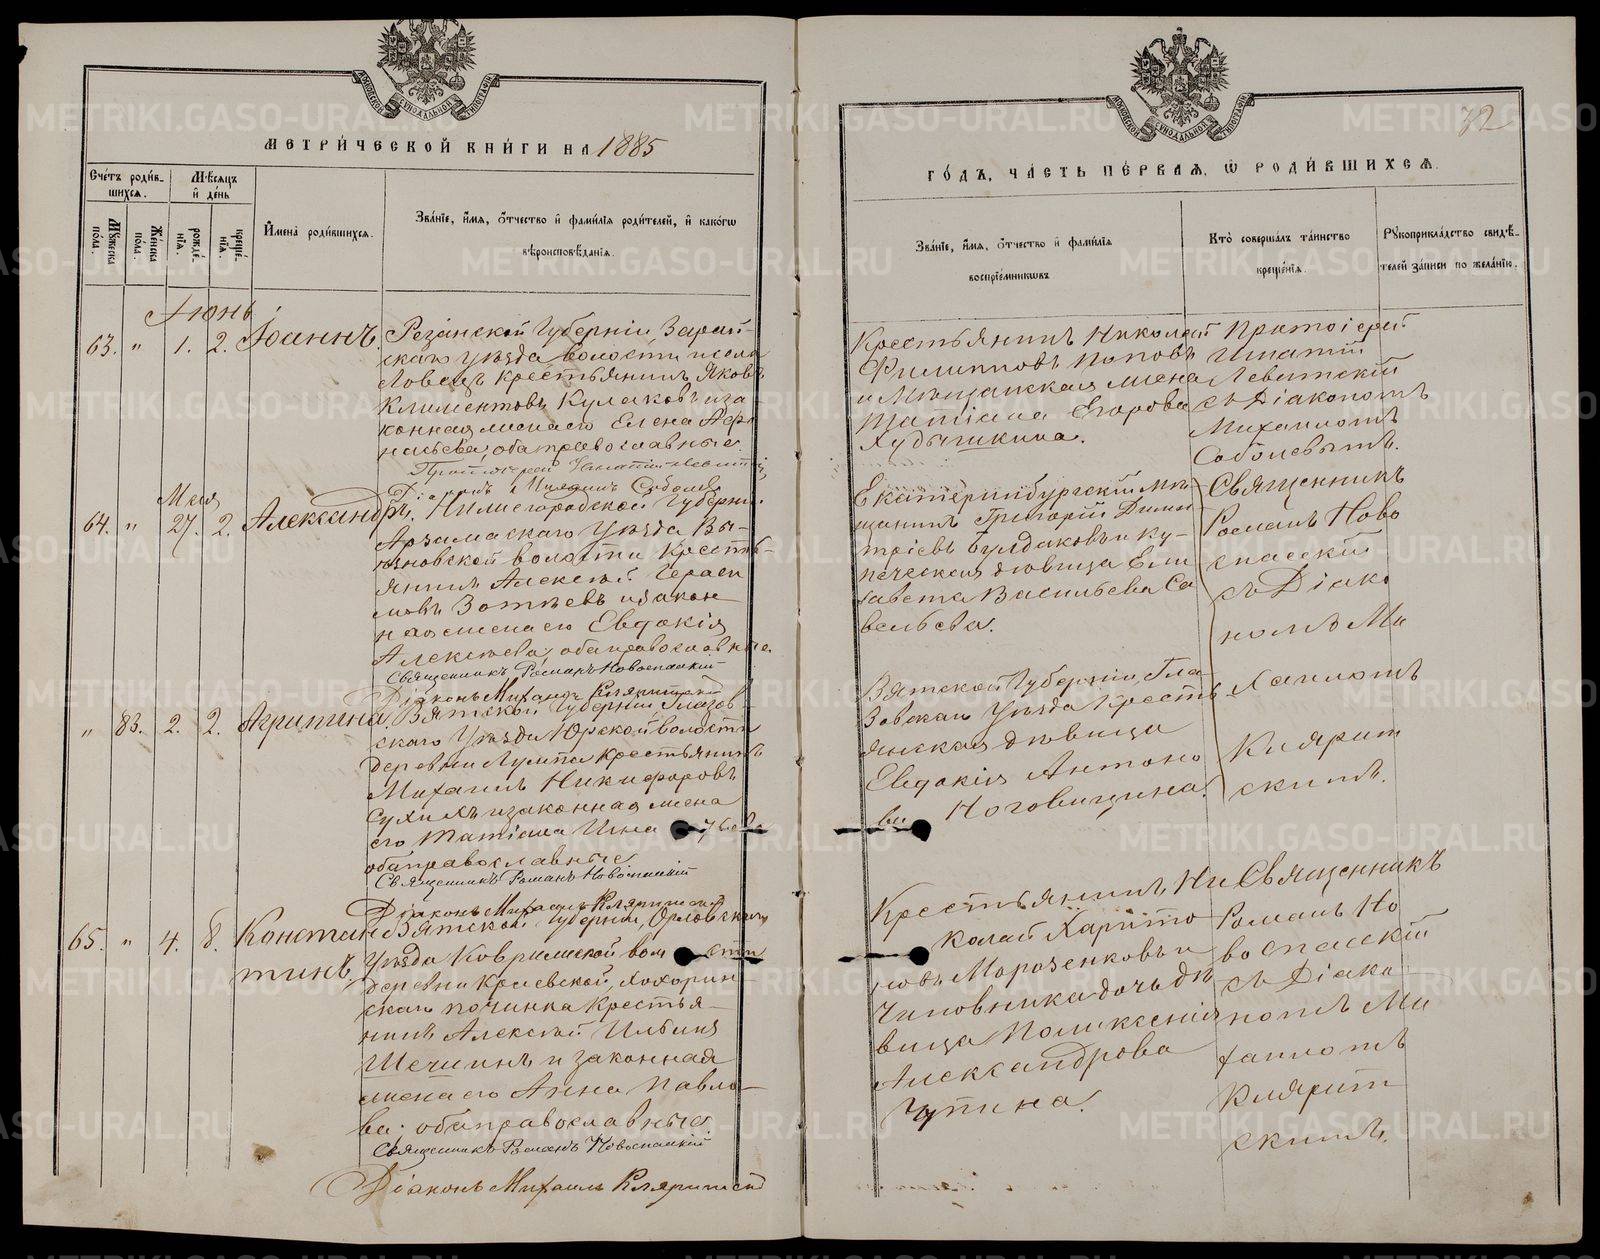 МЕТРИ́ЧЕСКОЙ КНИ́ГИ НА 1885
Сче́тъ роди́в-
шихсѧ.
Мѣсѧцъ
и҆ де́нь
Мꙋ́жеска
по́ла.
Же́нска
по́ла.
рожде́-
нїѧ.
креще́-
нїѧ.
И҆мена̀ роди́вшихсѧ.
Зва́нїе, и҆́мѧ, ѻ҆́тчество и҆ фами́лїѧ роди́телей, и҆ како́гѡ
вѣроисповѣ́данїѧ.
Іюнь
63. " 1. 2. Іоаннъ.
Резанской Губерніи, Зарай-
скаго уѣзда волости и села
Ловецъ крестьянинъ Яковъ
Климентовъ Кулаковъ и за
конная жена его Елена Афа
насьева, оба православные.
Протоіерей Игнатій Левитскій,
Діаконъ Михаилъ Соболевъ
Мая
64. " 27. 2. Александръ.
Нижегородской Губерніи.
Арзамаскаго Уѣзда Вы-
ѣзновской волости Кресть-
янинъ Алексѣй Гераси
мовъ Зотѣевъ и закон
ная жена его Евдокія
Алексѣева, оба православные.
Священникъ Романъ Новоспасскій
Діаконъ Михаилъ Кляритскій
" 83. 2. 2. Агрипина
Вятской Губерніи Глазов-
скаго Уѣзда Юрской волости
деревни Лумпа крестьянинъ
Михаилъ Никифоровъ
Сухихъ и законная жена
его Татіана
оба православные
Священникъ Романъ Новоспасскій
Діаконъ Михаилъ Кляритскій
65. " 4. 8. Констан
тинъ
Вятской Губерніи, Орловскаго
Уѣзда волости
деревни
скаго починка Кресть-
янинъ Алексѣй Ильинъ
и законная
жена его Анна Павло-
ва. оба православные.
Священникъ Романъ Новоспасскій
Діаконъ Михаилъ Кляритскій
72
ГО́ДЪ, ЧА́СТЬ ПЕ́РВАѦ, Ѡ҆ РОДИ́ВШИХСѦ.
Зва́нїе, и҆́мѧ, ѻ҆́тчество и҆ фами́лїѧ
воспрїе́мникѡвъ
Кто̀ соверша́лъ та́инство
креще́нїѧ.
Рꙋкоприкла́дство свидѣ́-
телей за́писи по жела́нїю.
Крестьянинъ Николай
Филипповъ Поповъ
и Мѣщанская жена
Татіана Егорова
Худышкина.
Протоіерей
Игнатій
Левитскій
съ Діакономъ
Михаиломъ
Соболевымъ.
Екатеринбургскій мѣ
щанинъ Григорій Дими
тріевъ Булдаковъ и ку-
печеская дѣвица Ели
савета Васильева Са
вельева.
Священникъ
Романъ Ново
спасскій
съ Діако
номъ Ми
хаиломъ
Клярит
скимъ.
Вятской Губерніи, Гла-
зовскаго Уѣзда Кресть
янская дѣвица
Евдокія Антоно
ва Ноговицина.
Крестьянинъ Ни
колай Харито
новъ Морозенковъ и
Чиновника дочь дѣ
вица Поликсенія
Александрова
Чупина.
Священникъ
Романъ Но
воспасскій
съ Діако-
номъ Ми
хаиломъ
Клярит
скимъ.
METRIKI.GASO-URAL.RU